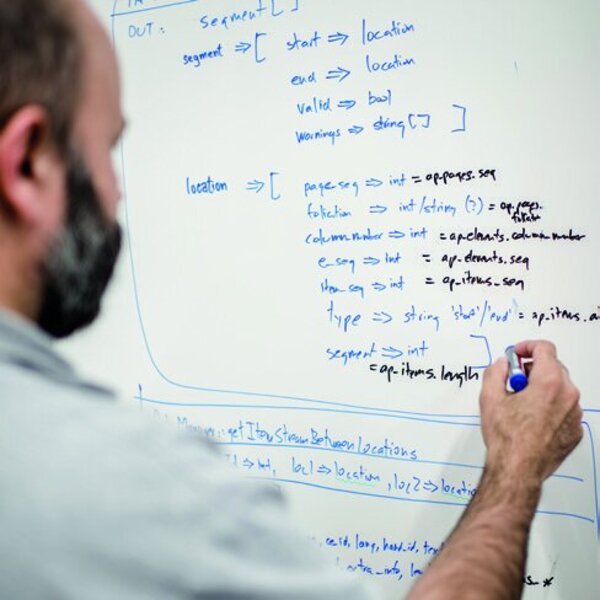 OUT: segment[]
segment => [ start => location
end => location
valid => bool
warnings => string[] ]
location => [ page_seg => int = ap_pages.seg
foliation => int/string (?) = ap_pages.
column_number => int = ap_elements.column_number
e_seg => int = ap_elements.seg
item_seg => int = ap_items_seg
type => string 'start'/'end' = ap_items.
segment => int ]
= ap_items.length
::getItemStreamBetweenLocations
loc1 => location, loc2 => location
lang, hand_id,
extra_info,